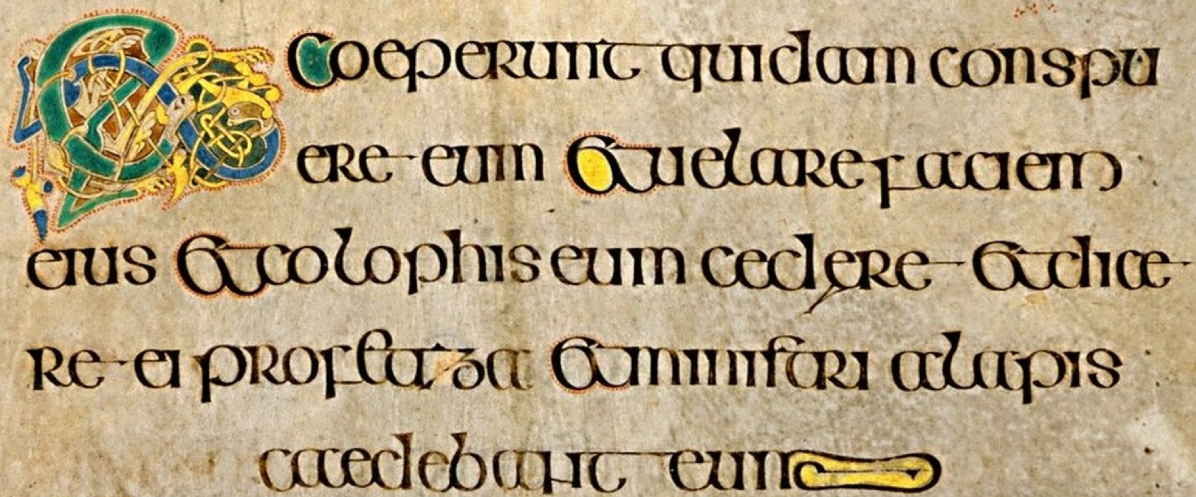 Et coeperunt quidam conspu
ere eum et uelare faciem
eius et colophis eum cedere et dice
re ei profetiza et ministri alapis
caedebant eum